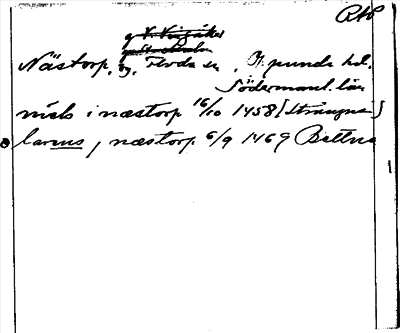 RAP
Nästorp, g, Floda sn, Oppunda hd.
Södermanl. län
niels i næstorp 16/10 1458 [Strängnæs]
larens i næstorp 6/9 1469 Bettna